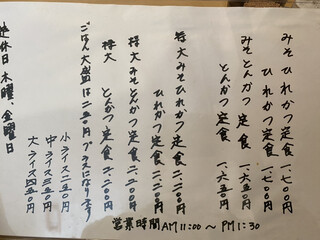 みそひれかつ定食 一、七〇〇円
ひれかつ定食 一、七〇〇円
みそとんかつ定食 一、六五〇円
とんかつ定食 一、六五〇円
特大みそひれかつ定食 二、二〇〇円
ひれかつ定食 二、二〇〇円
特大みそとんかつ定食 二、二〇〇円
特大 とんかつ定食 二、二〇〇円
ごはん大盛は二五〇円プラスになります
小ライス二五〇円
中ライス三五〇円
大ライス四五〇円
定休日 木曜、金曜日
営業時間 AM11:00 〜 PM1:30